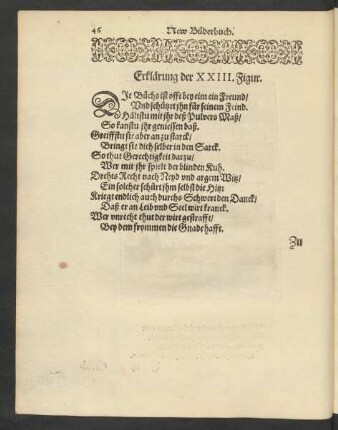 46 New Bilderbuch.
Erklärung der XXIII. Figur.
DIe Büchs ist offt bey eim ein Freund/
Vnd schützet jhn für seinem Feind.
Hältstu mit jhr deß Pulvers Maß/
So kanstu jhr geniessen baß.
Greiffstu sie aber an zu starck/
Bringt sie dich selber in den Sarck.
So thut Gerechtigkeit darzu/
Wer mit jhr spielt der blinden Kuh.
Drehts Recht nach Neyd vnd argem Witz/
Ein solcher schürt jhm selbst die Hitz:
Kriegt endlich auch durchs Schwert den Danck/
Daß er an Leib vnd Seel wirt kranck.
Wer vnrecht thut der wirt gestrafft/
Bey dem frommen die Gnad hafft.
Zu